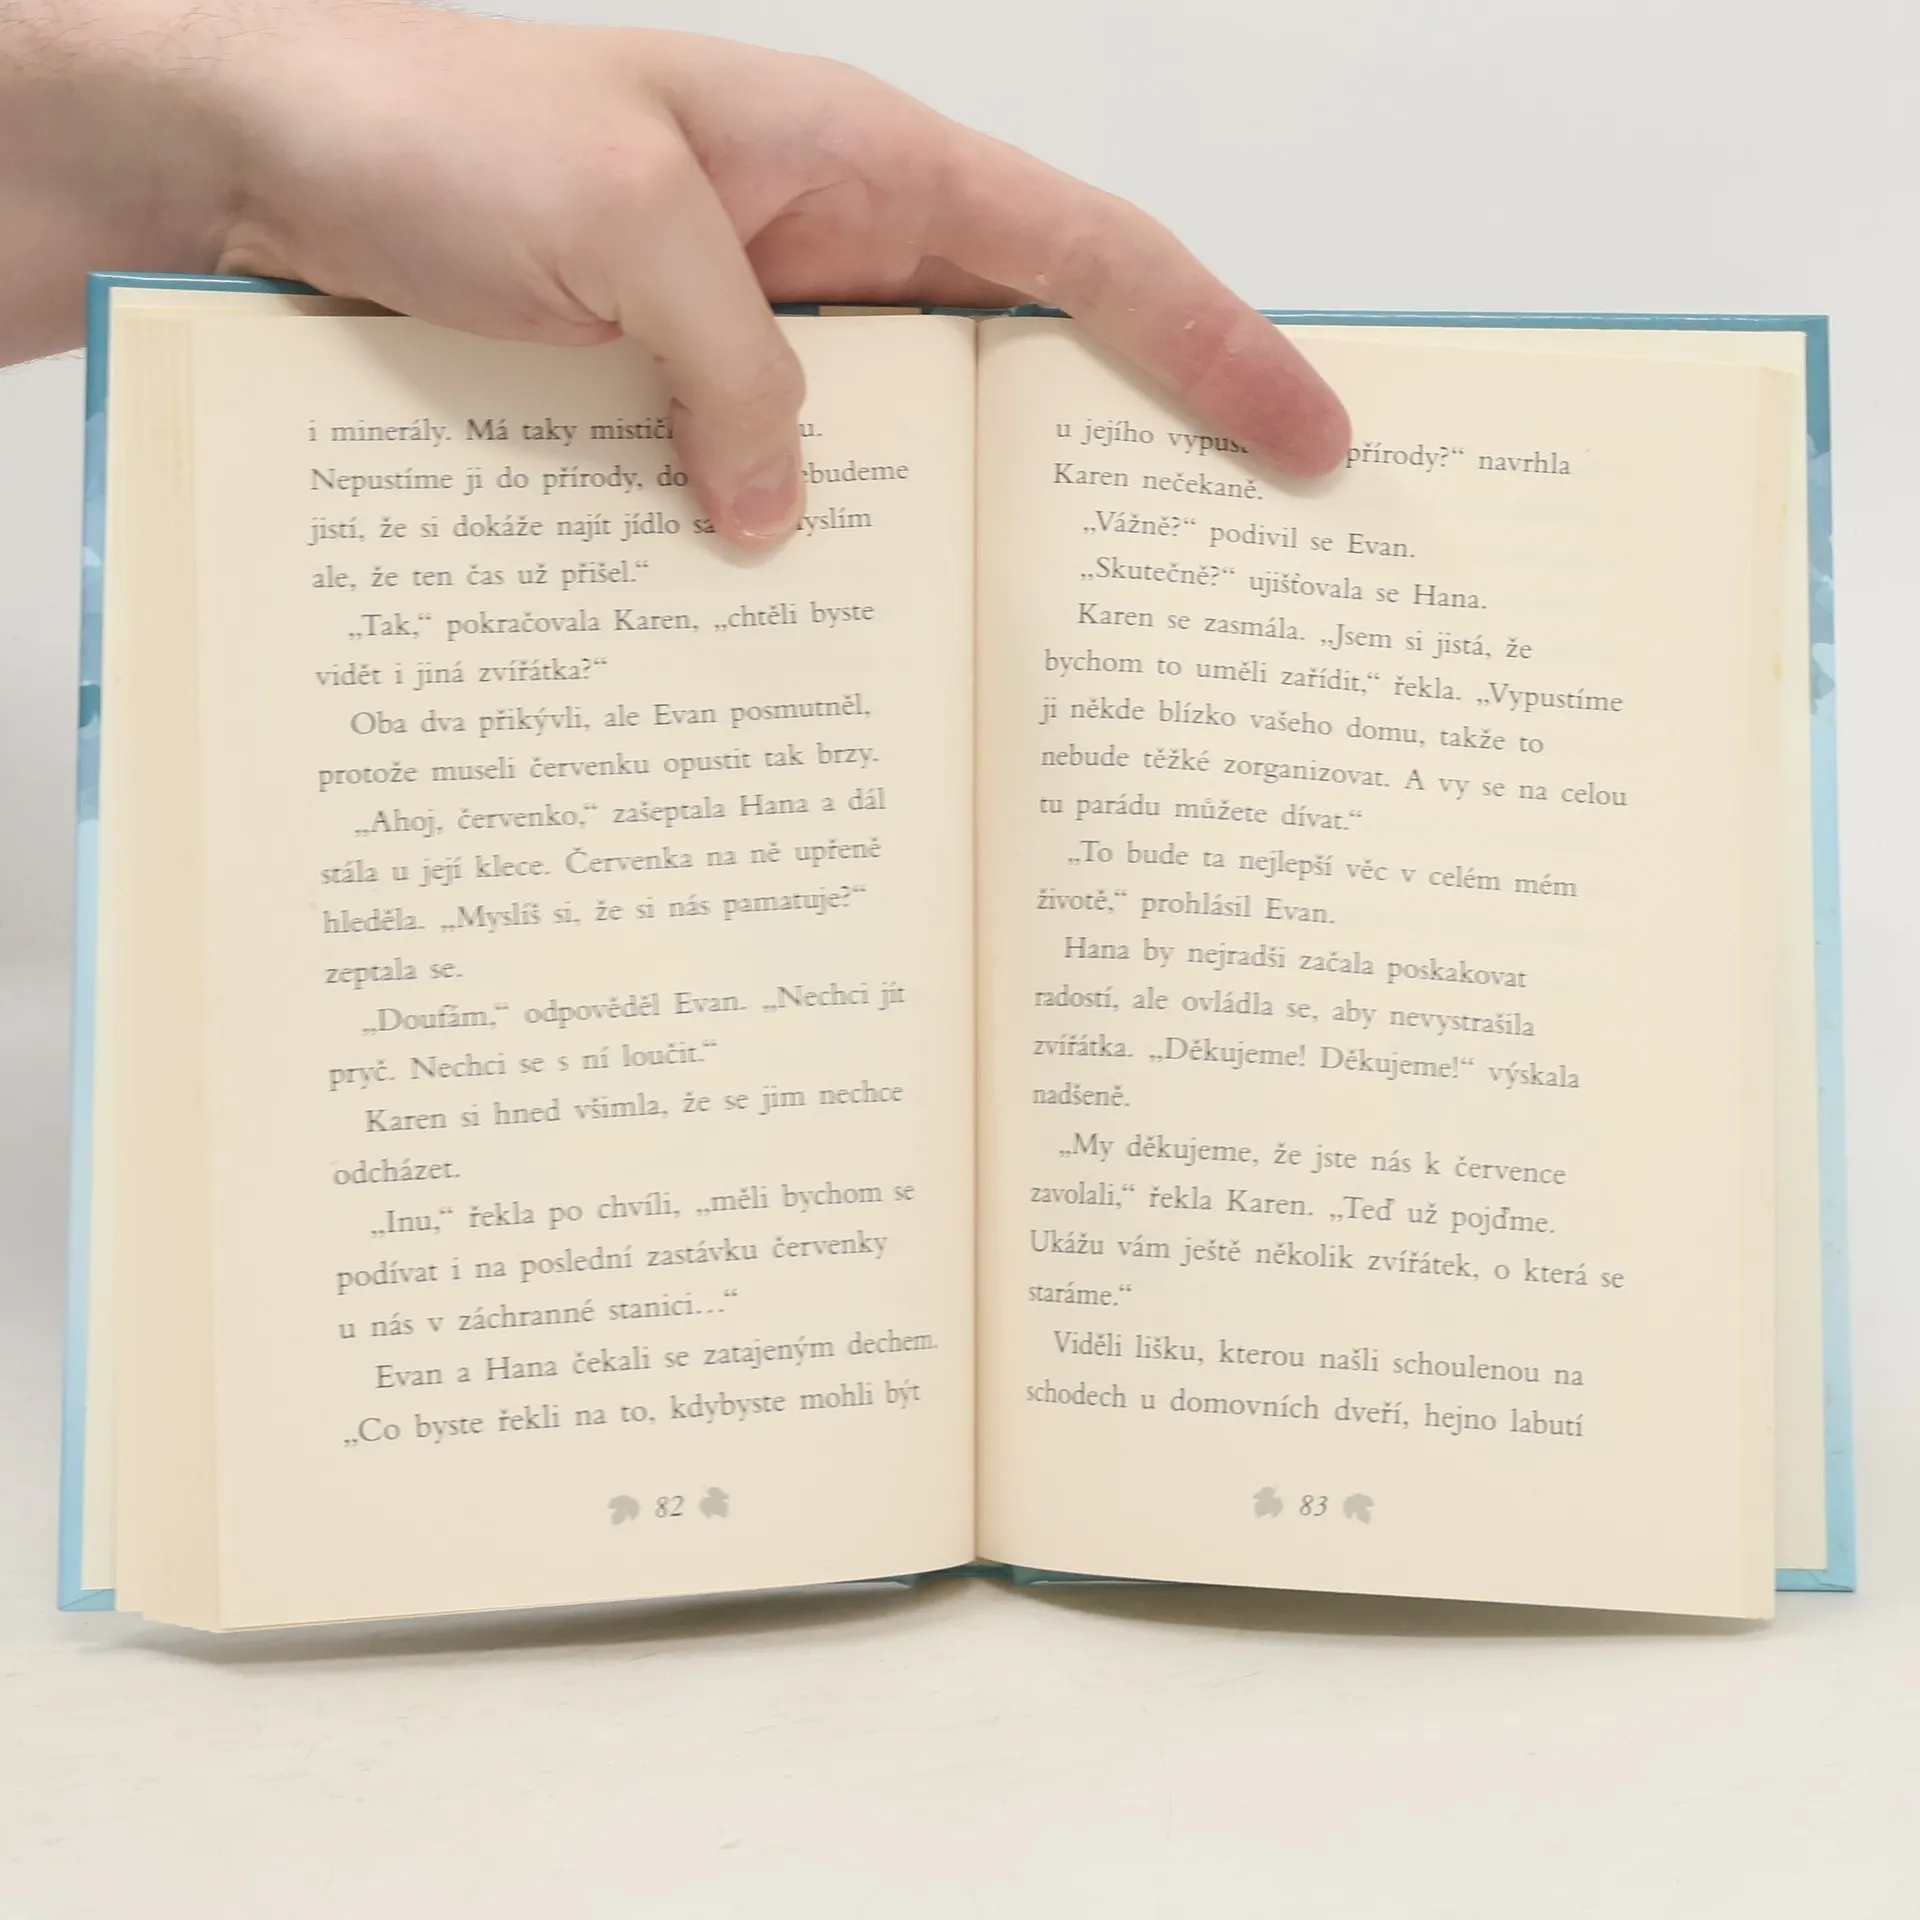 i minerály. Má taky u.
Nepustíme ji do přírody,
jistí, že si dokáže najít jídlo
ale, že ten čas už přišel.“
„Tak,“ pokračovala Karen, „chtěli byste
vidět i jiná zvířátka?“
Oba dva přikývli, ale Evan posmutněl,
protože museli červenku opustit tak brzy.
„Ahoj, červenko,“ zašeptala Hana a dál
stála u její klece. Červenka na ně upřeně
hleděla. „Myslíš si, že si nás pamatuje?“
zeptala se.
„Doufám,“ odpověděl Evan. „Nechci jít
pryč. Nechci se s ní loučit.“
Karen si hned všimla, že se jim nechce
odcházet.
„Inu,“ řekla po chvíli, „měli bychom se
podívat i na poslední zastávku červenky
u nás v záchranné stanici…“
Evan a Hana čekali se zatajeným dechem.
„Co byste řekli na to, kdybyste mohli být
82
u jejího přírody?“ navrhla
Karen nečekaně.
„Vážně?“ podivil se Evan.
„Skutečně?“ ujišťovala se Hana.
Karen se zasmála. „Jsem si jistá, že
bychom to uměli zařídit,“ řekla. „Vypustíme
ji někde blízko vašeho domu, takže to
nebude těžké zorganizovat. A vy se na celou
tu parádu můžete dívat.“
„To bude ta nejlepší věc v celém mém
životě,“ prohlásil Evan.
Hana by nejradši začala poskakovat
radostí, ale ovládla se, aby nevystrašila
zvířátka. „Děkujeme! Děkujeme!“ výskala
nadšeně.
„My děkujeme, že jste nás k července
zavolali,“ řekla Karen. „Teď už pojďme.
Ukážu vám ještě několik zvířátek, o která se
staráme.“
Viděli lišku, kterou našli schoulenou na
schodech u domovních dveří, hejno labutí
83